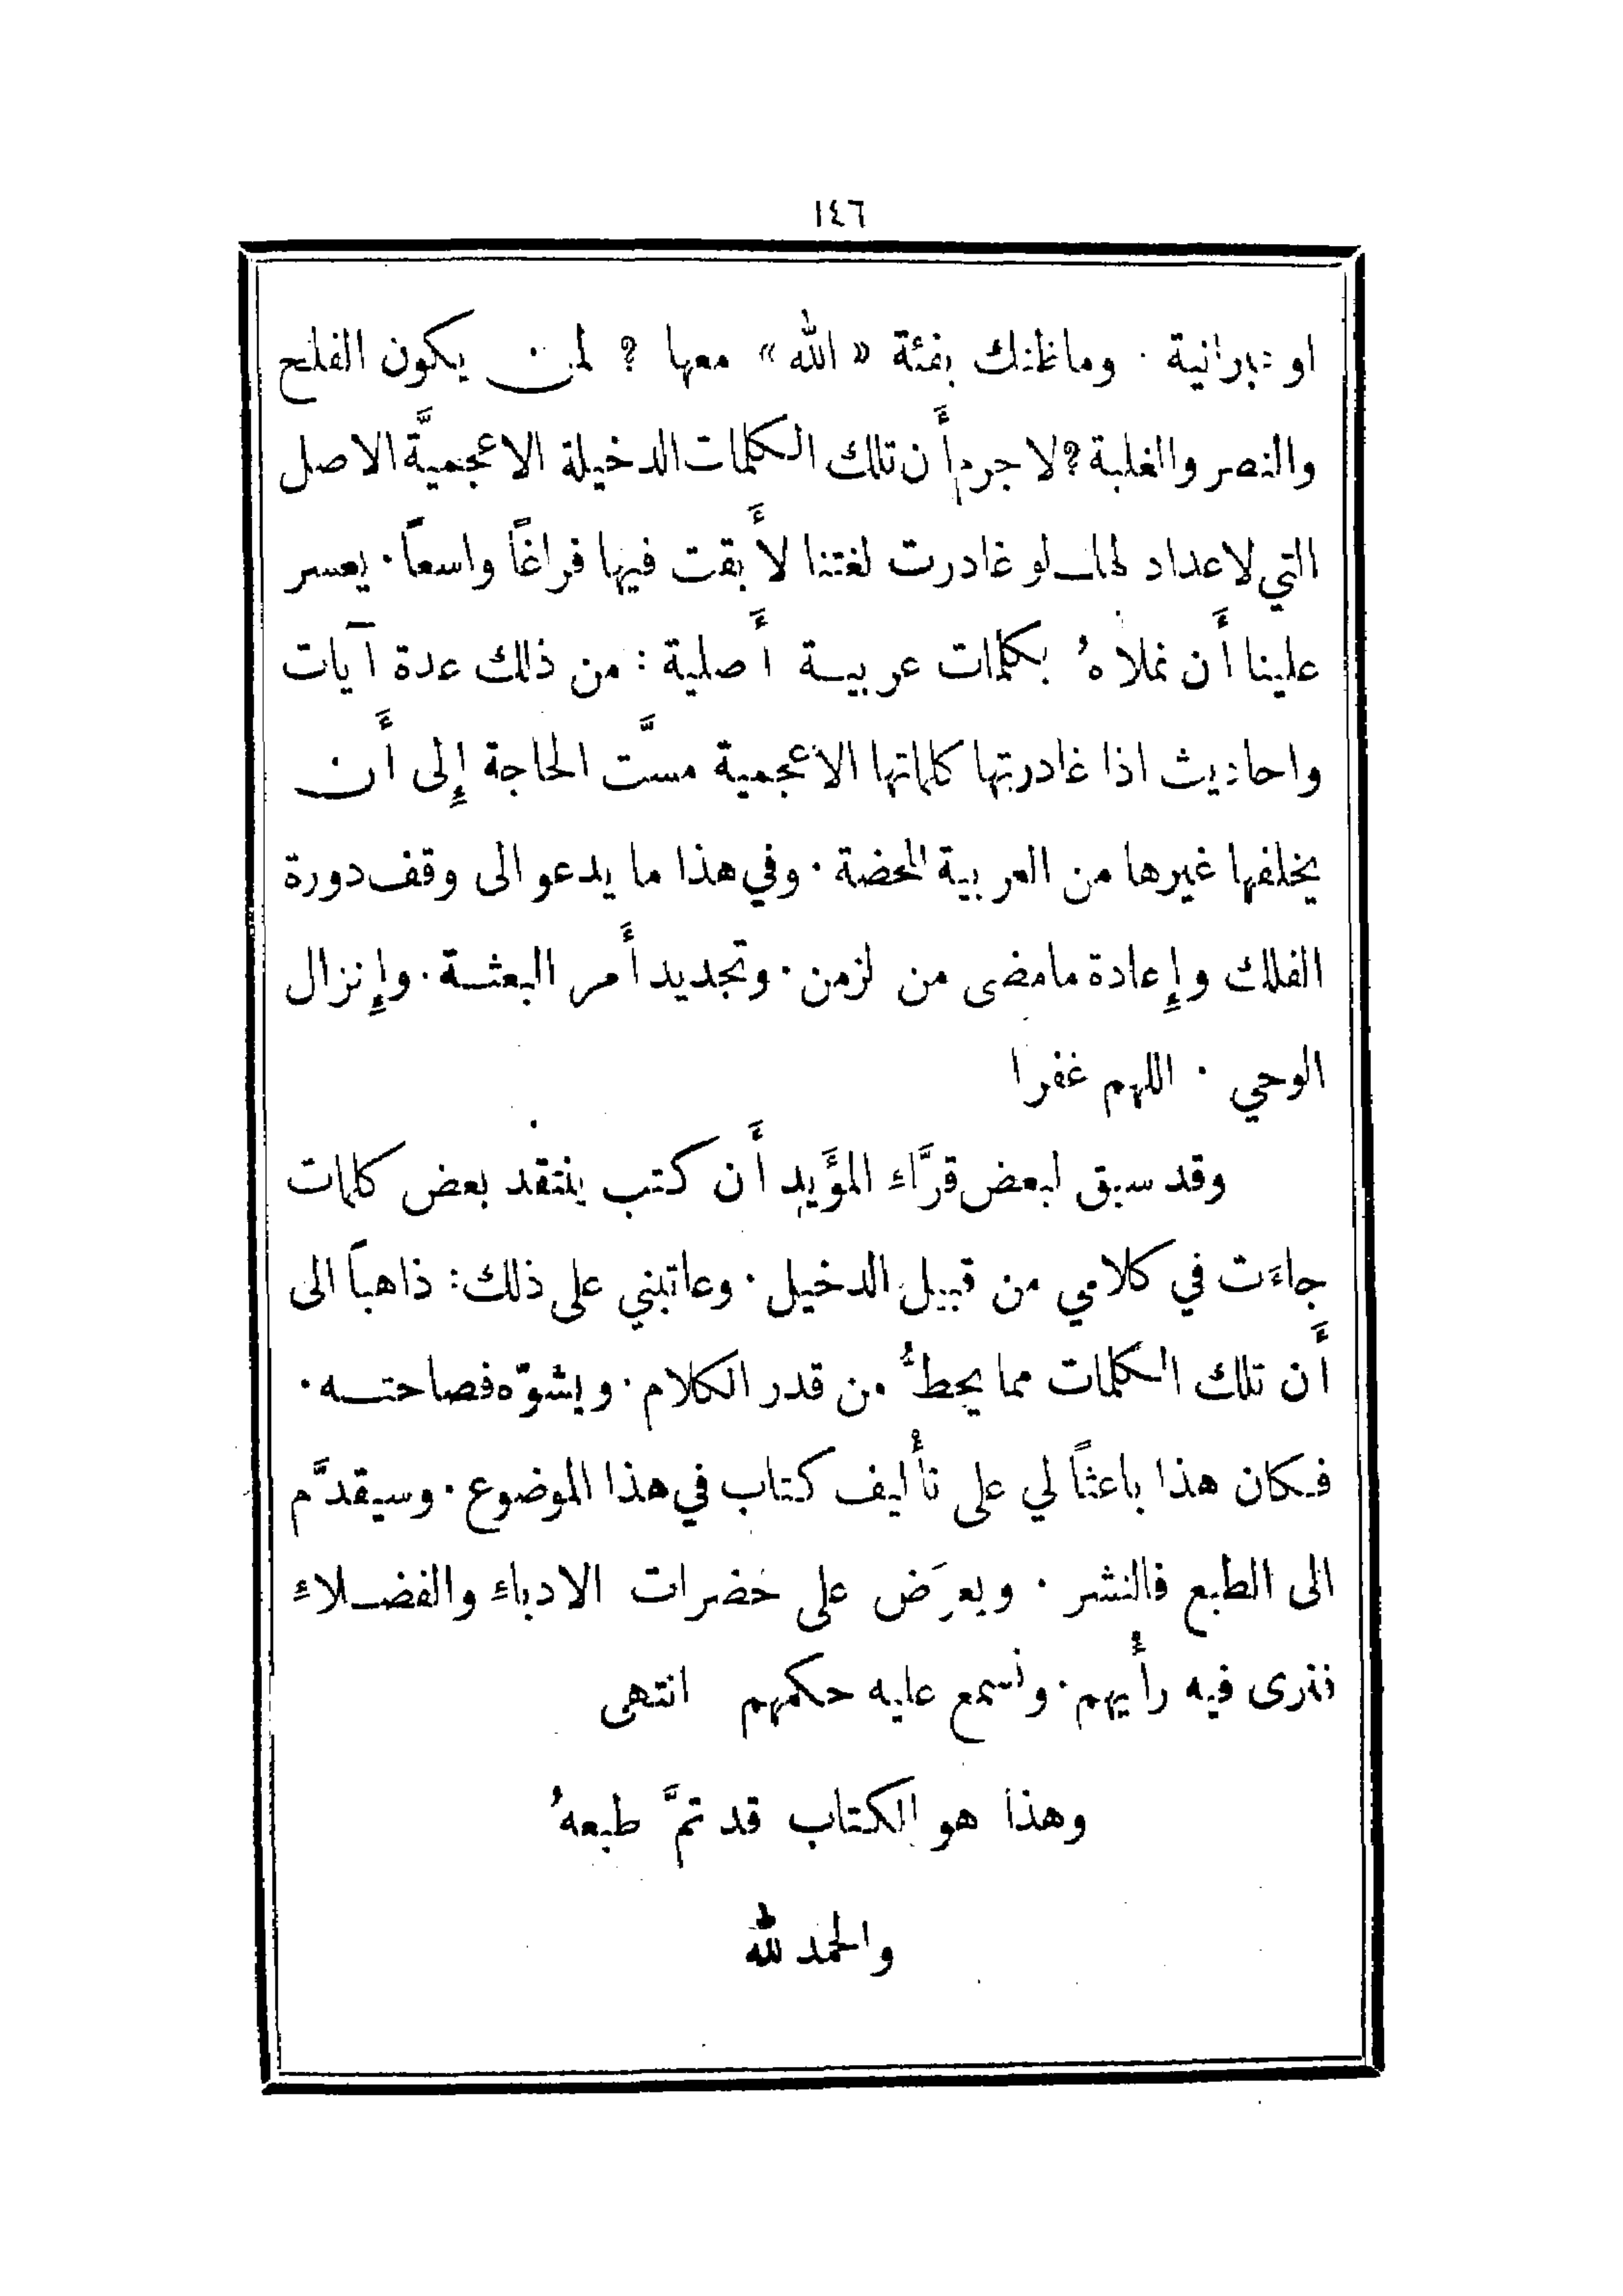 ١٤٦
او عبرانية . وما ظنك بفئة « الله » معها ? لمن يكون الفلح
والنصر والغلبة ? لا جرم أَن تلك الكلمات الدخيلة الاعجميَّة الاصل
التي لاعداد لها لو غادرت لغتنا لأَبقت فيها فراغًا واسعًا . يعسر
علينا أَن نملاهُ بكلمات عربية أَصلية : من ذلك عدة آيات
واحاديث اذا غادرتها كلماتها الاعجمية مسَّت الحاجة إِلى أَن
يخلفها غيرها من العربية المحضة . وفي هذا ما يدعو الى وقف دورة
الفلك وإِعادة مامضى من لزمن . وتجديد أَمر البعثة . وإِنزال
الوحي . اللهم غفرا
وقد سبق لبعض قرَّاء المؤَيد أَن كتب ينتقد بعض كلمات
جاءَت في كلامي من قبيل الدخيل . وعاتبني على ذلك : ذاهبًا الى
أَن تلك الكلمات مما يحطُّ من قدر الكلام . ويشوّه فصاحته .
فكان هذا باعثًا لي على تأْليف كتاب في هذا الموضوع . وسيقدَّم
الى الطبع فالنشر . ويعرَض على حضرات الادباء والفضلاء
فنرى فيه رأْيهم . ونسمع عليه حكمهم انتهى
وهذا هو الكتاب قد تمَّ طبعهُ
والحمد لله